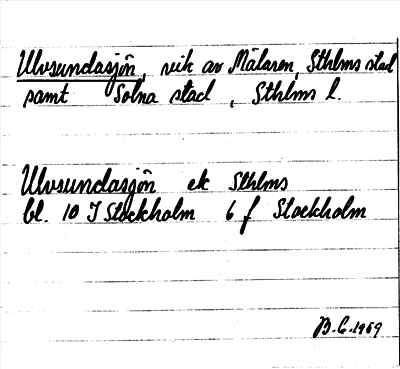 Ulvsundasjön, vik av Mälaren, Sthlms stad
samt Solna stad, Sthlms l.
Ulvsundasjön ek Sthlms
bl. 10 I Stockholm 6 f Stockholm
B.C. 1969